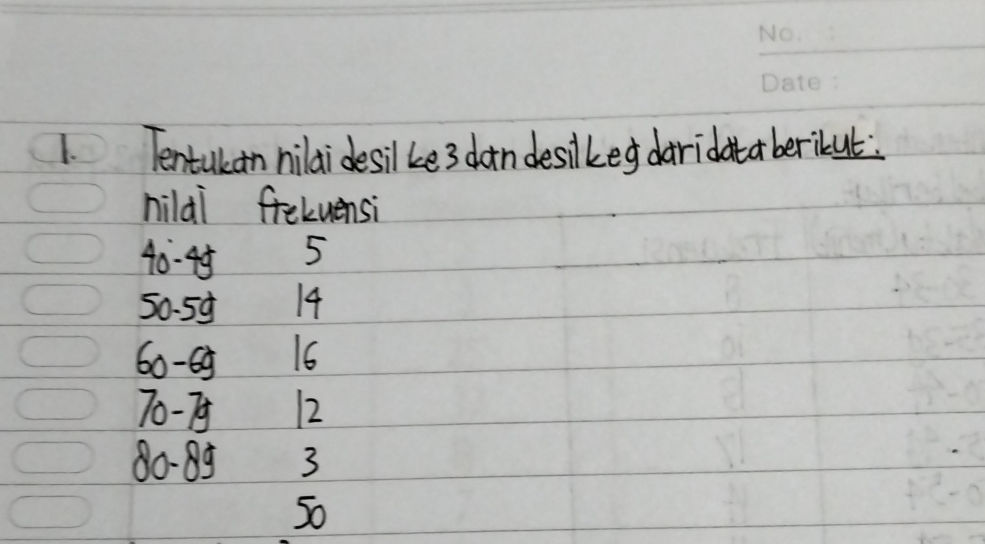 No. :
Date :
1. Tentukan nilai desil ke 3 dan desil ke 9 dari data berikut:
nilai frekuensi
40-49 5
50-59 14
60-69 16
70-79 12
80-89 3
50